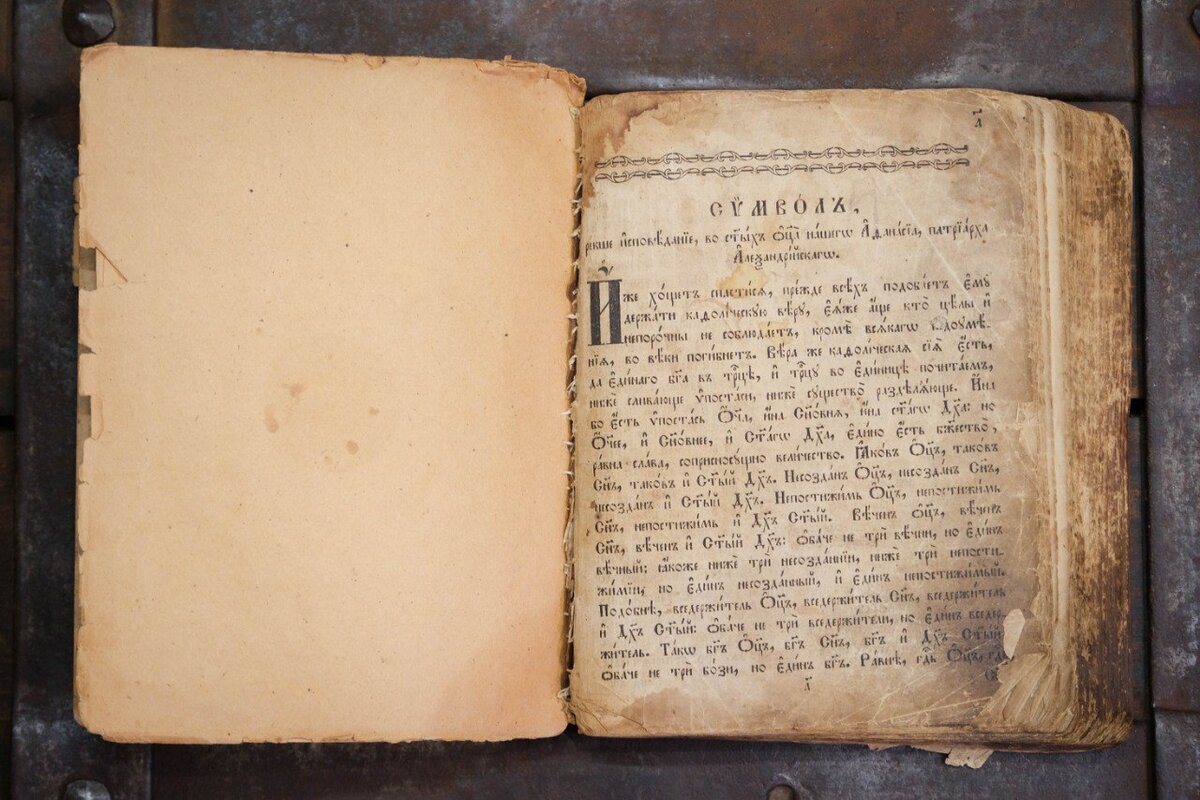 а҃
СѴ́МВОЛЪ,
рекше и҆сповѣ́данїе, во ст҃ы́хъ ѻ҆ц҃а̀ на́шегѡ А҆ѳана́сїа, патрїа́рха
А҆леѯандрі́йскагѡ.
И҆́же хо́щетъ спасти́сѧ, пре́жде всѣ́хъ подоба́етъ є҆мꙋ̀
держа́ти каѳолі́ческꙋю вѣ́рꙋ, є҆ѧ́же а҆́ще кто̀ цѣ́лы и҆
непоро́чны не соблюда́етъ, кромѣ̀ всѧ́кагѡ недоꙋмѣ́-
нїѧ, во вѣ́ки поги́бнетъ. Вѣ́ра же каѳолі́ческаѧ сїѧ̀ є҆́сть,
да є҆ди́наго бг҃а въ трⷪ҇цѣ, и҆ трⷪ҇цꙋ во є҆ди́ницѣ почита́емъ,
нижѐ слива́юще ѵ҆поста́си, нижѐ сꙋщество̀ раздѣлѧ́юще. И҆́на
бо є҆́сть ѵ҆поста́сь Ѻ҆́ч҃а, и҆́на Сн҃о́внѧ, и҆́на ст҃а́гѡ Дх҃а: но
Ѻ҆́ч҃ее, и҆ Сн҃о́внее, и҆ Ст҃а́гѡ Дх҃а, є҆ди́но є҆́сть бж҃ество̀,
ра́вна сла́ва, соприсносꙋ́щно вели́чество. Ꙗ҆ко́въ Ѻ҆ц҃ъ, тако́въ
Сн҃ъ, тако́въ и҆ Ст҃ы́й Дх҃ъ. Несозда́нъ Ѻ҆ц҃ъ, несозда́нъ Сн҃ъ,
несозда́нъ и҆ Ст҃ы́й Дх҃ъ. Непостижи́мь Ѻ҆ц҃ъ, непостижи́мь
Сн҃ъ, непостижи́мь и҆ Дх҃ъ Ст҃ы́й. Вѣ́ченъ Ѻ҆ц҃ъ, вѣ́ченъ
Сн҃ъ, вѣ́ченъ и҆ Ст҃ы́й Дх҃ъ: ѻ҆ба́че не трѝ вѣ́чни, но є҆ди́нъ
вѣ́чный: ꙗ҆́коже нижѐ трѝ несозда́ннїи, нижѐ трѝ непости-
жи́мїи, но є҆ди́нъ несозда́нный, и҆ є҆ди́нъ непостижи́мый.
Подо́бнѣ, вседержи́тель Ѻ҆ц҃ъ, вседержи́тель Сн҃ъ, вседержи́тель
и҆ Дх҃ъ Ст҃ы́й: ѻ҆ба́че не трѝ вседержи́тели, но є҆ди́нъ вседер-
жи́тель. Та́кѡ бг҃ъ Ѻ҆ц҃ъ, бг҃ъ Сн҃ъ, бг҃ъ и҆ Дх҃ъ Ст҃ы́й
ѻ҆ба́че не трѝ бо́зи, но є҆ди́нъ бг҃ъ. Ра́внѣ, гдⷭ҇ь Ѻ҆ц҃ъ, гдⷭ҇ь
а҃